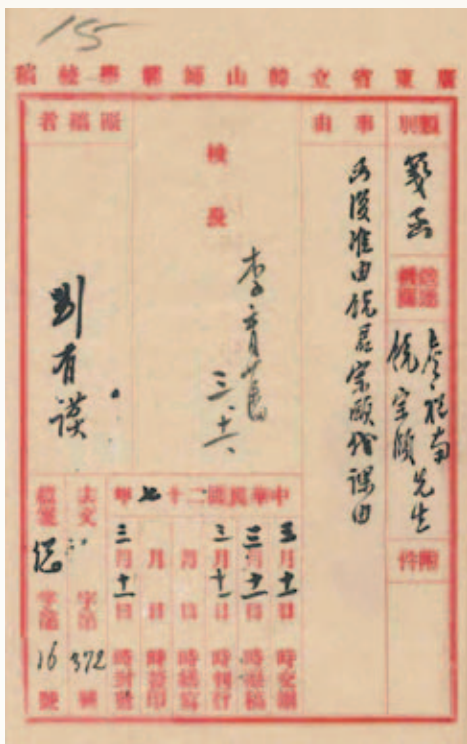 15
廣東省立韓山師範學校稿
類別
箋函
送達機關
詹祝南
饒宗頤 先生
附件
事由
函復准由饒君宗頤代課由
校長
李育藩
三、十一
擬稿者
劉有謨
中華民國二十七年
三月十一日 時交辦
三月十一日 時擬稿
三月十一日 時判行
月 日 時繕寫
月 日 時蓋印
三月十一日 時封發
去文 字第372號
檔案 字第16號